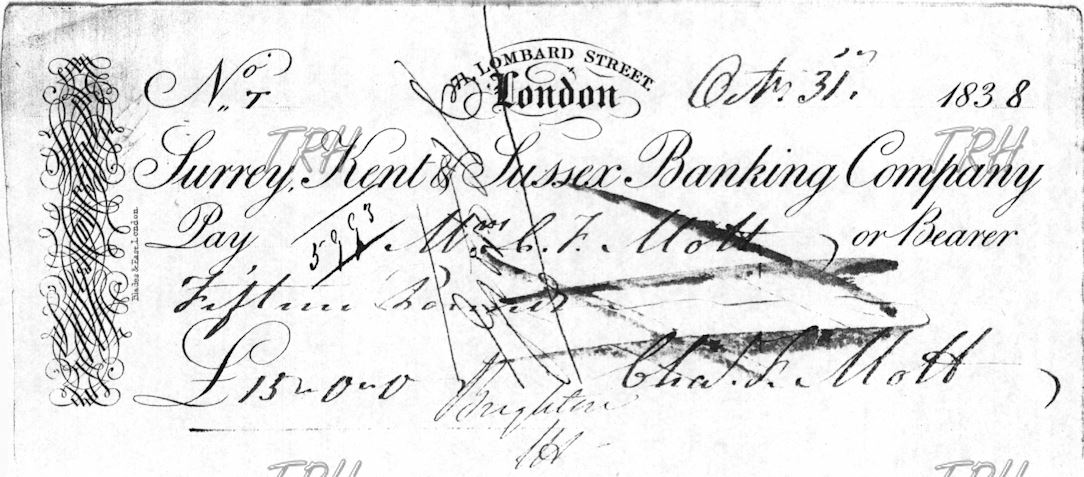 71, LOMBARD STREET.
London
No. T Octr. 31st. 1838
TRH TRH
Surrey, Kent & Sussex Banking Company
Blades & East, London.
Pay Mrs. C. F. Mott or Bearer
5993
Fifteen Pounds
£15 - 0 - 0 Chas. F. Mott
Brighton
TRH TRH